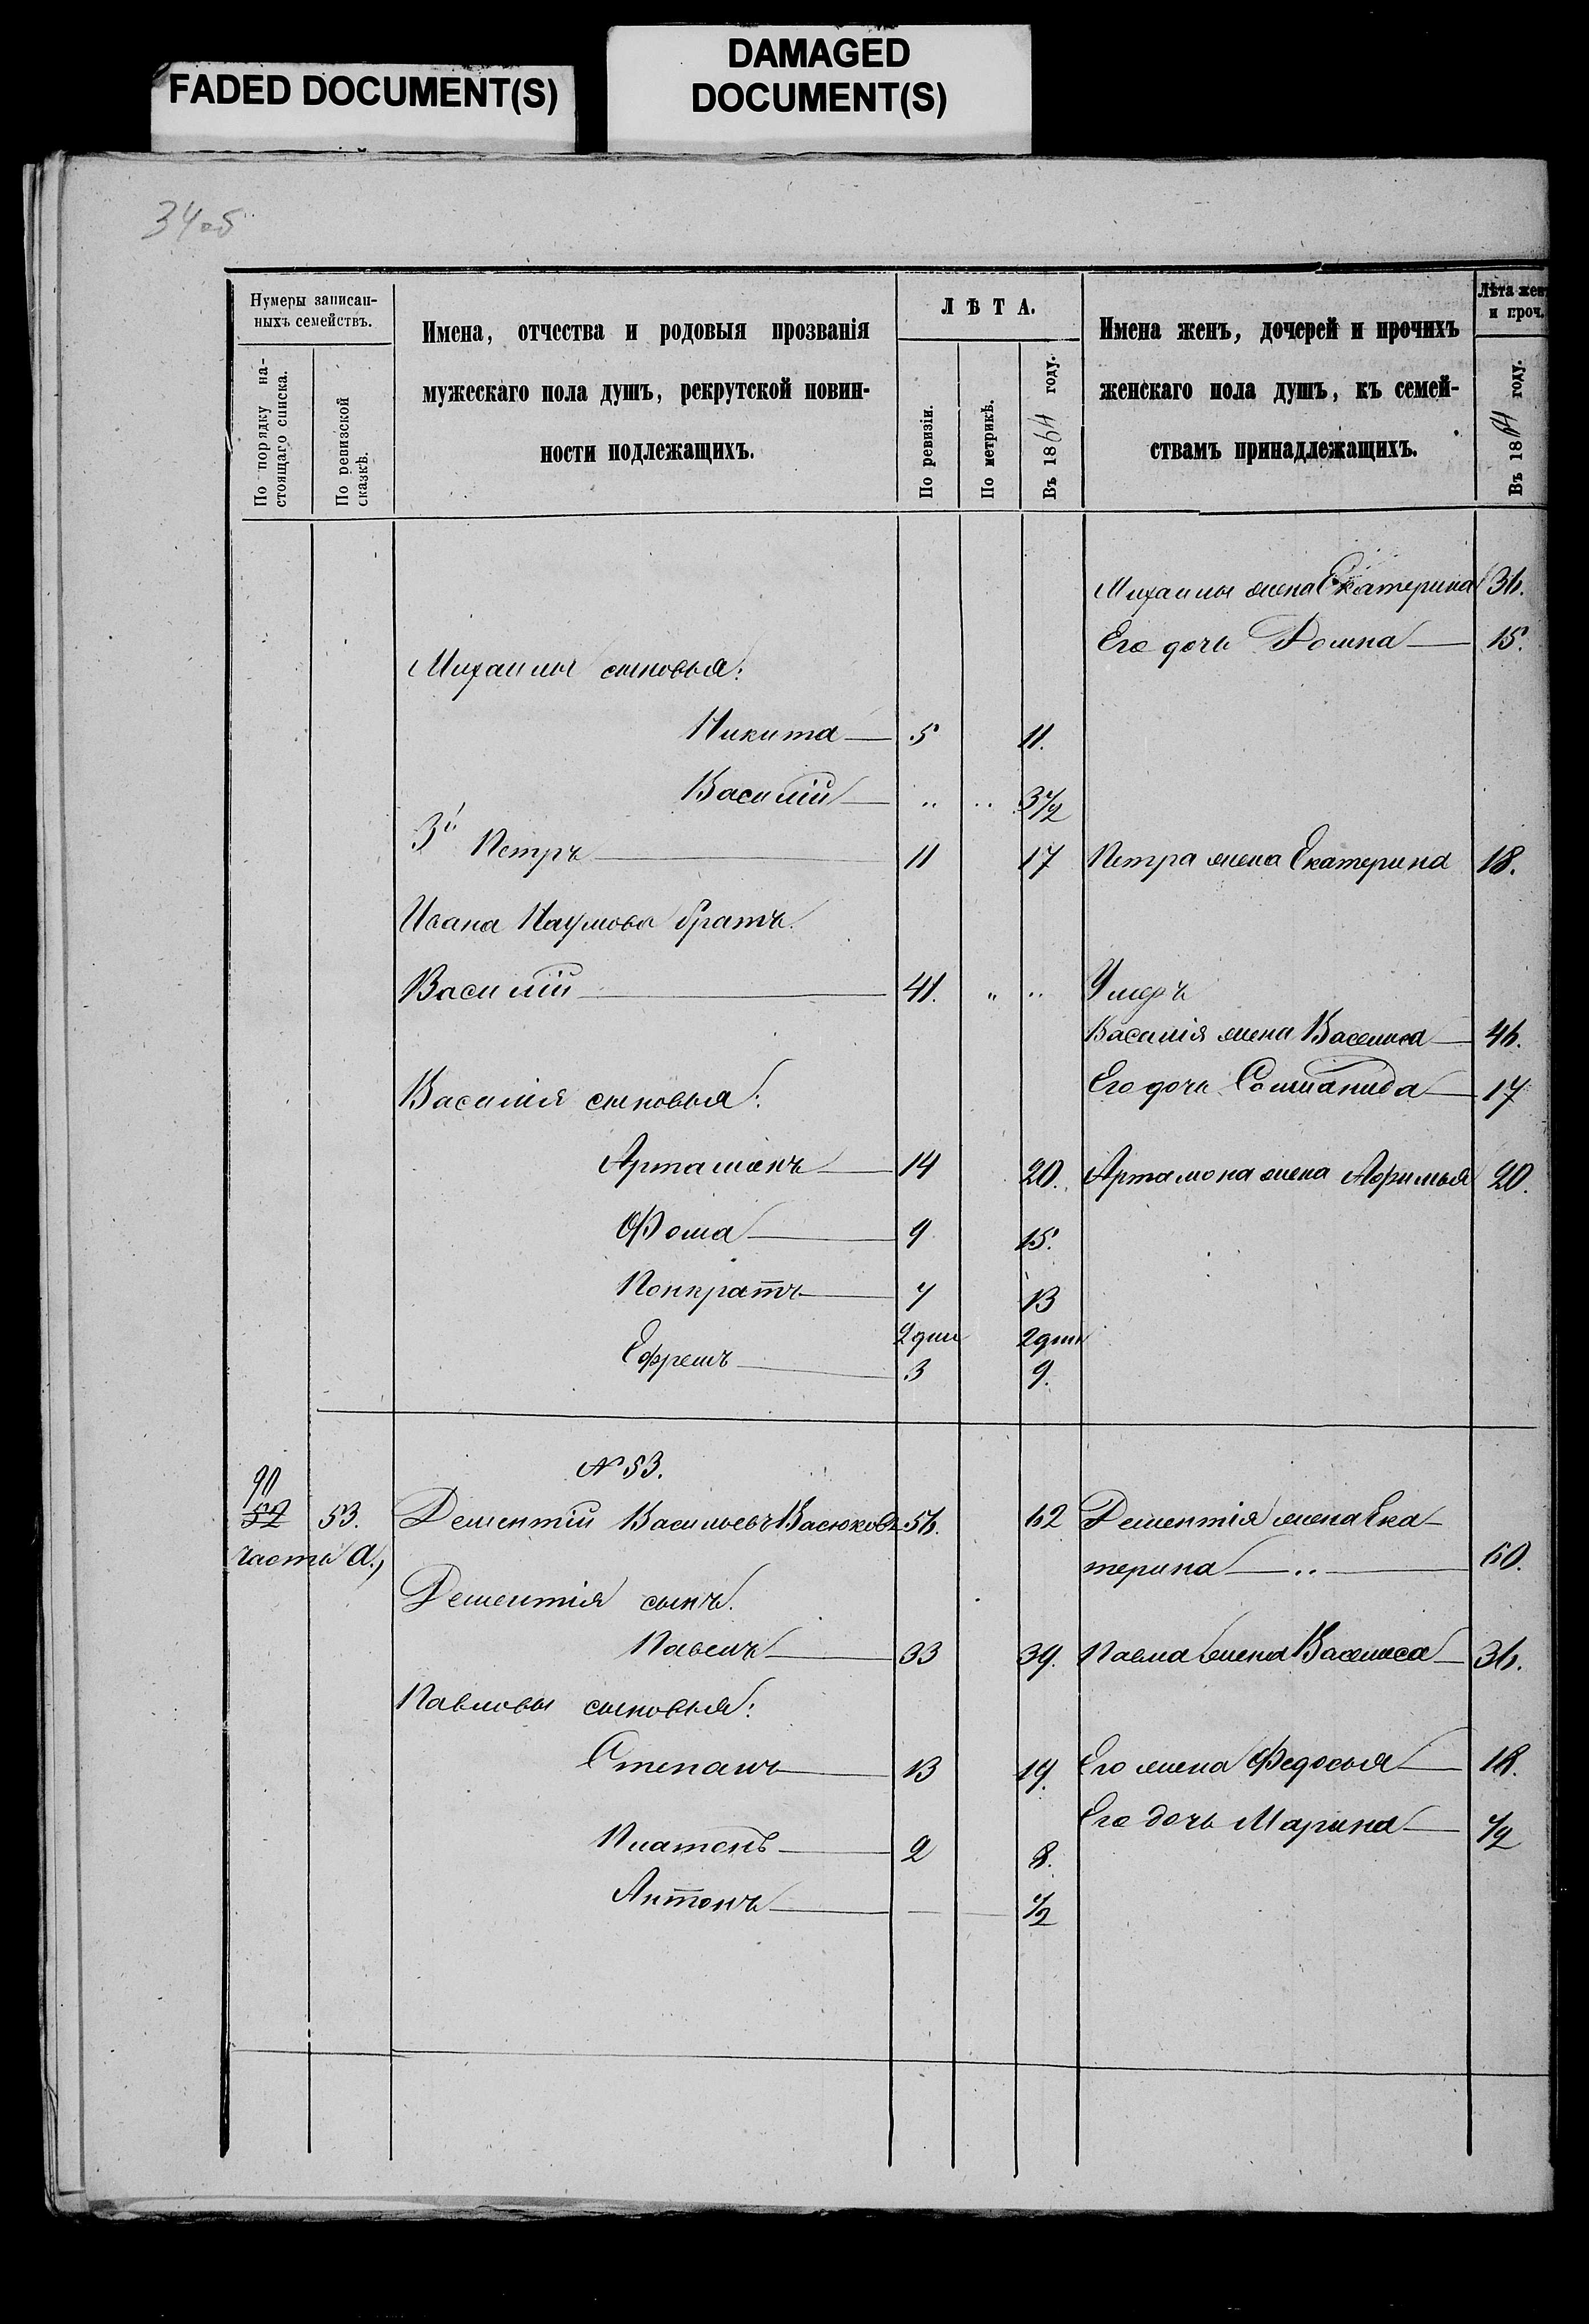 FADED DOCUMENT(S)
DAMAGED
DOCUMENT(S)
34 об
Нумеры записан-
ныхъ семействъ.
По порядку на-
стоящаго списка.
По ревизской
сказкѣ.
Имена, отчества и родовыя прозванія
мужескаго пола душъ, рекрутской повин-
ности подлежащихъ.
ЛѢТА.
По ревизіи.
По метрикѣ.
Въ 1864 году.
Имена женъ, дочерей и прочихъ
женскаго пола душъ, къ семей-
ствамъ принадлежащихъ.
Лѣта жен
и проч.
Въ 1864 году.
Михаилы жена Екатерина 36.
Его дочь Домна — 15.
Михаилы сыновья:
Никита — 5 11.
Василій — „ „ 3 1/2
3й Петръ — 11 17 Петра жена Екатерина 18.
Ивана Наумова братъ.
Василій — 41. „ „ Умеръ
Василія жена Василиса — 46.
Его дочь Соломанида — 17
Василія сыновья:
Артамонъ — 14 20. Артамона жена Афимья 20.
Фома — 9 15.
Понкратъ — 7 13
2 дни 2 дни
Ефремъ — 3 9.
№ 53.
90
52 53. Дементій Васильевъ Васюковъ 56. 62 Дементія жена Ека-
часть а.) терина — „ — 60.
Дементія сынъ.
Павелъ — 33 39. Павла жена Василиса — 36.
Павловы сыновья:
Степанъ — 13 19. Его жена Федосья — 18.
Его дочь Марина — 1/2
Платонъ — 2 8.
Антонъ — — — 1/2